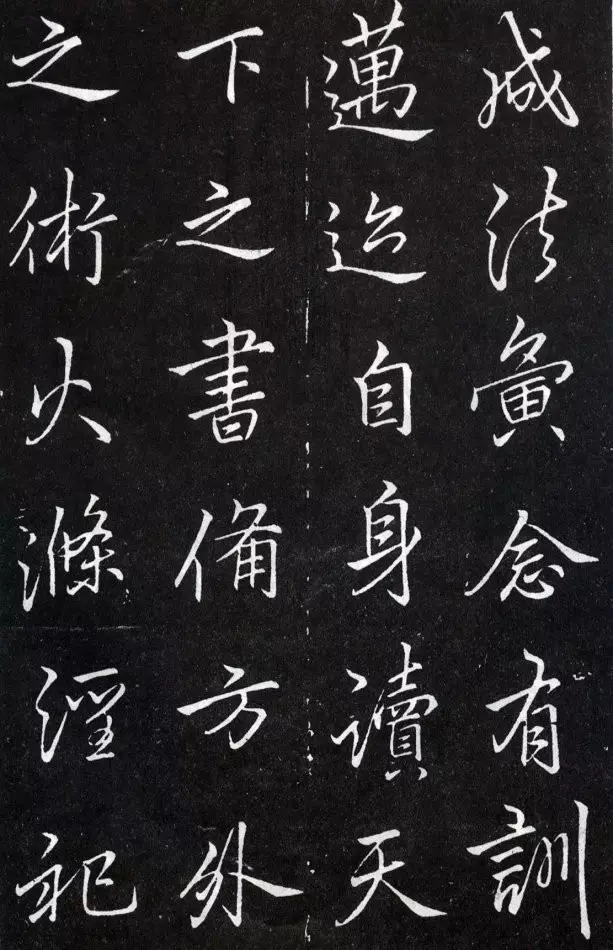 法夤念有訓
邁迨自身讀天
下之書備方外
之術火滌淫祀